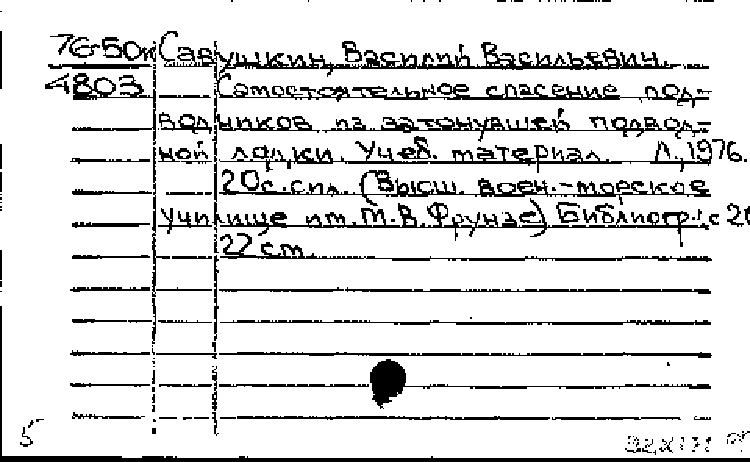 76-50к Савушкин, Василий Васильевич.
4803 Самостоятельное спасение под-
водников из затонувшей подвод-
ной лодки. Учеб. материал. Л., 1976.
20с. сил. (Высш. воен.-морское
училище им. М.В. Фрунзе) Библиогр.: с 20
22 см.
5